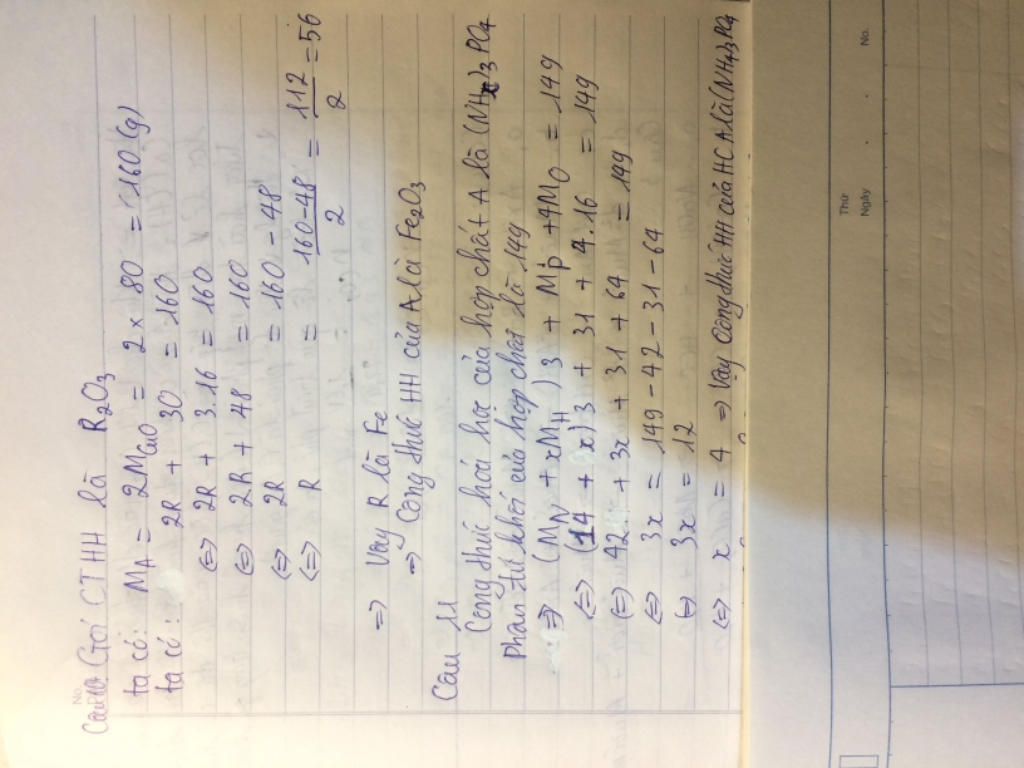 No.
Câu 10 Gọi CTHH là R₂O₃
ta có: M_A = 2M_CuO = 2 × 80 = 160 (g)
ta có: 2R + 3O = 160
⇔ 2R + 3.16 = 160
⇔ 2R + 48 = 160
⇔ 2R = 160 - 48
⇔ R = (160-48)/2 = 112/2 = 56
⇒ Vậy R là Fe
⇒ Công thức HH của A là Fe₂O₃
Câu 11
Công thức hoá học của hợp chất A là (NHₓ)₃PO₄
Phân tử khối của hợp chất là 149
⇒ (M_N + xM_H)3 + M_P + 4M_O = 149
⇔ (14 + x)3 + 31 + 4.16 = 149
⇔ 42 + 3x + 31 + 64 = 149
⇔ 3x = 149 - 42 - 31 - 64
⇔ 3x = 12
⇔ x = 4 ⇒ Vậy Công thức HH của HC A là (NH₄)₃PO₄
Thứ
Ngày
No.